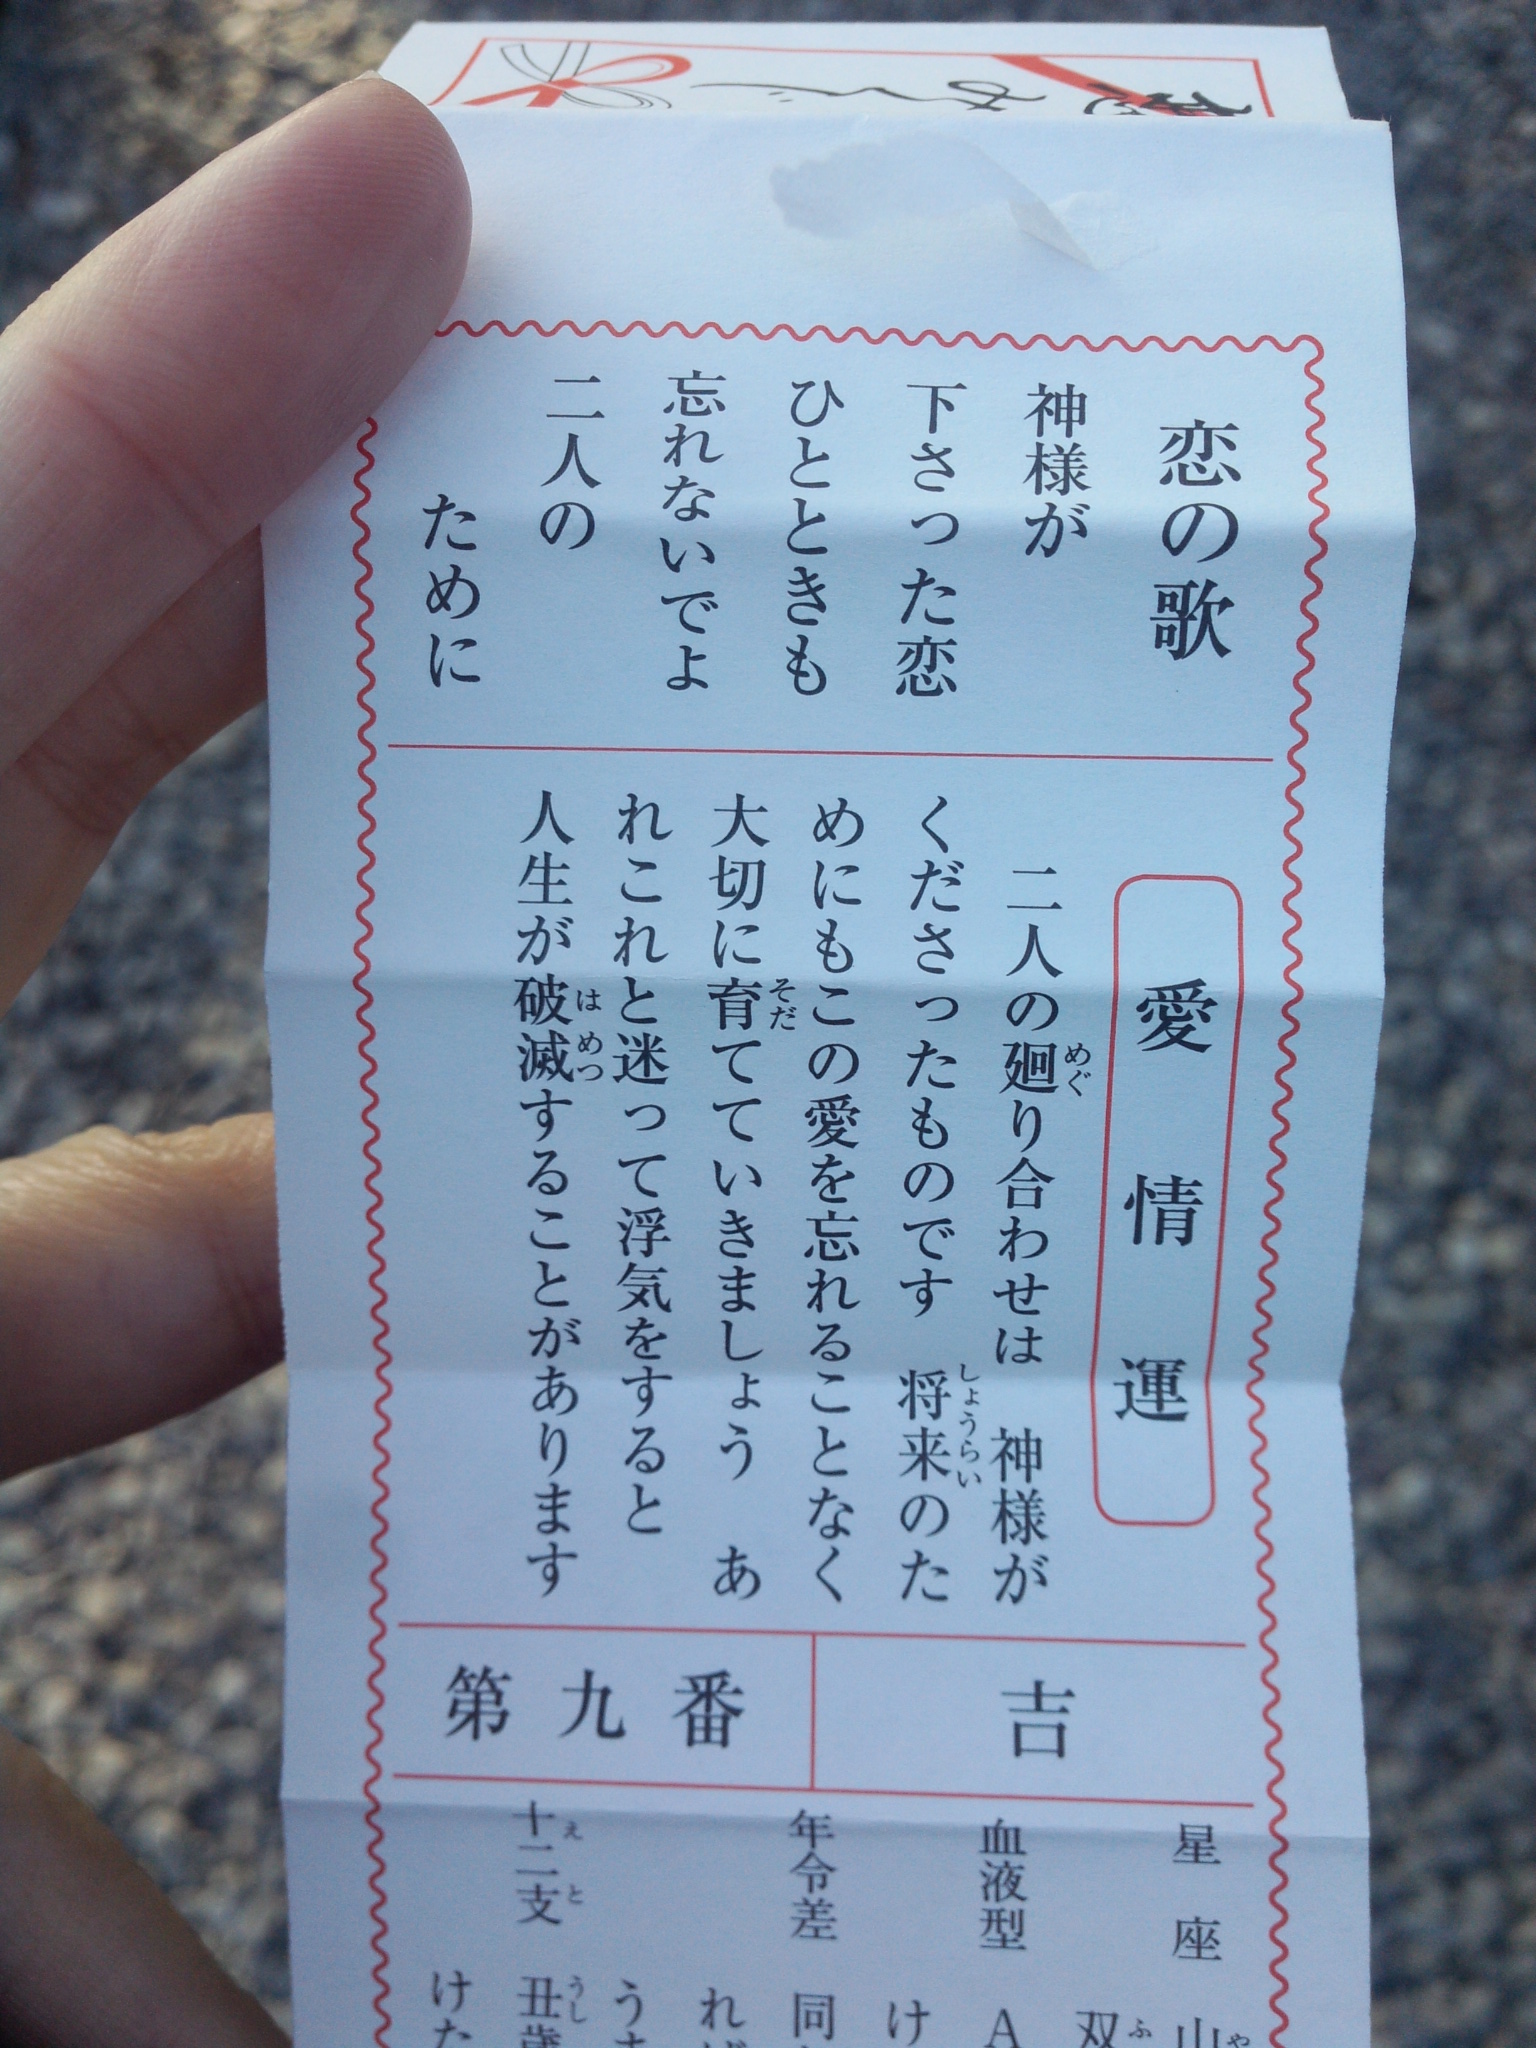 恋の歌
神様が
下さった恋
ひとときも
忘れないでよ
二人の
ために
愛情運
二人の廻り合わせは 神様が
めぐ
くださったものです 将来のた
しょうらい
めにもこの愛を忘れることなく
大切に育てていきましょう あ
そだ
れこれと迷って浮気をすると
人生が破滅することがあります
はめつ
吉
第九番
星座 山
や
双
ふ
血液型 A
け
年令差 同
れば
うま
十二支 丑歳
えと うし
けた